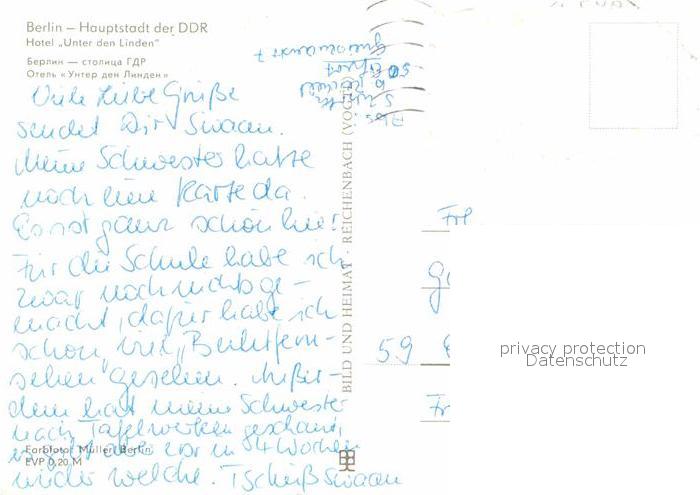 Berlin – Hauptstadt der DDR
Hotel „Unter den Linden"
Берлин — столица ГДР
Отель «Унтер ден Линден»
Viele liebe Grüße
sendet Dir Swaan.
Meine Schwester hatte
noch eine Karte da.
Es ist ganz schön hier.
Für die Schule habe ich
zwar noch nichts ge-
macht, dafür habe ich
schon viel „Berlinfern-
sehen" gesehen. Außer-
dem hat meine Schwester
nach Tafelwerken geschaut,
es gibt aber vor in 4 Wochen
wieder welche. Tschüß Swaan
Farbfoto: Müller, Berlin
EVP 0,20 M
BILD UND HEIMAT · REICHENBACH (VOGTL)
Abs.:
50 Erfurt
7
Frl
59
Fr
privacy protection
Datenschutz